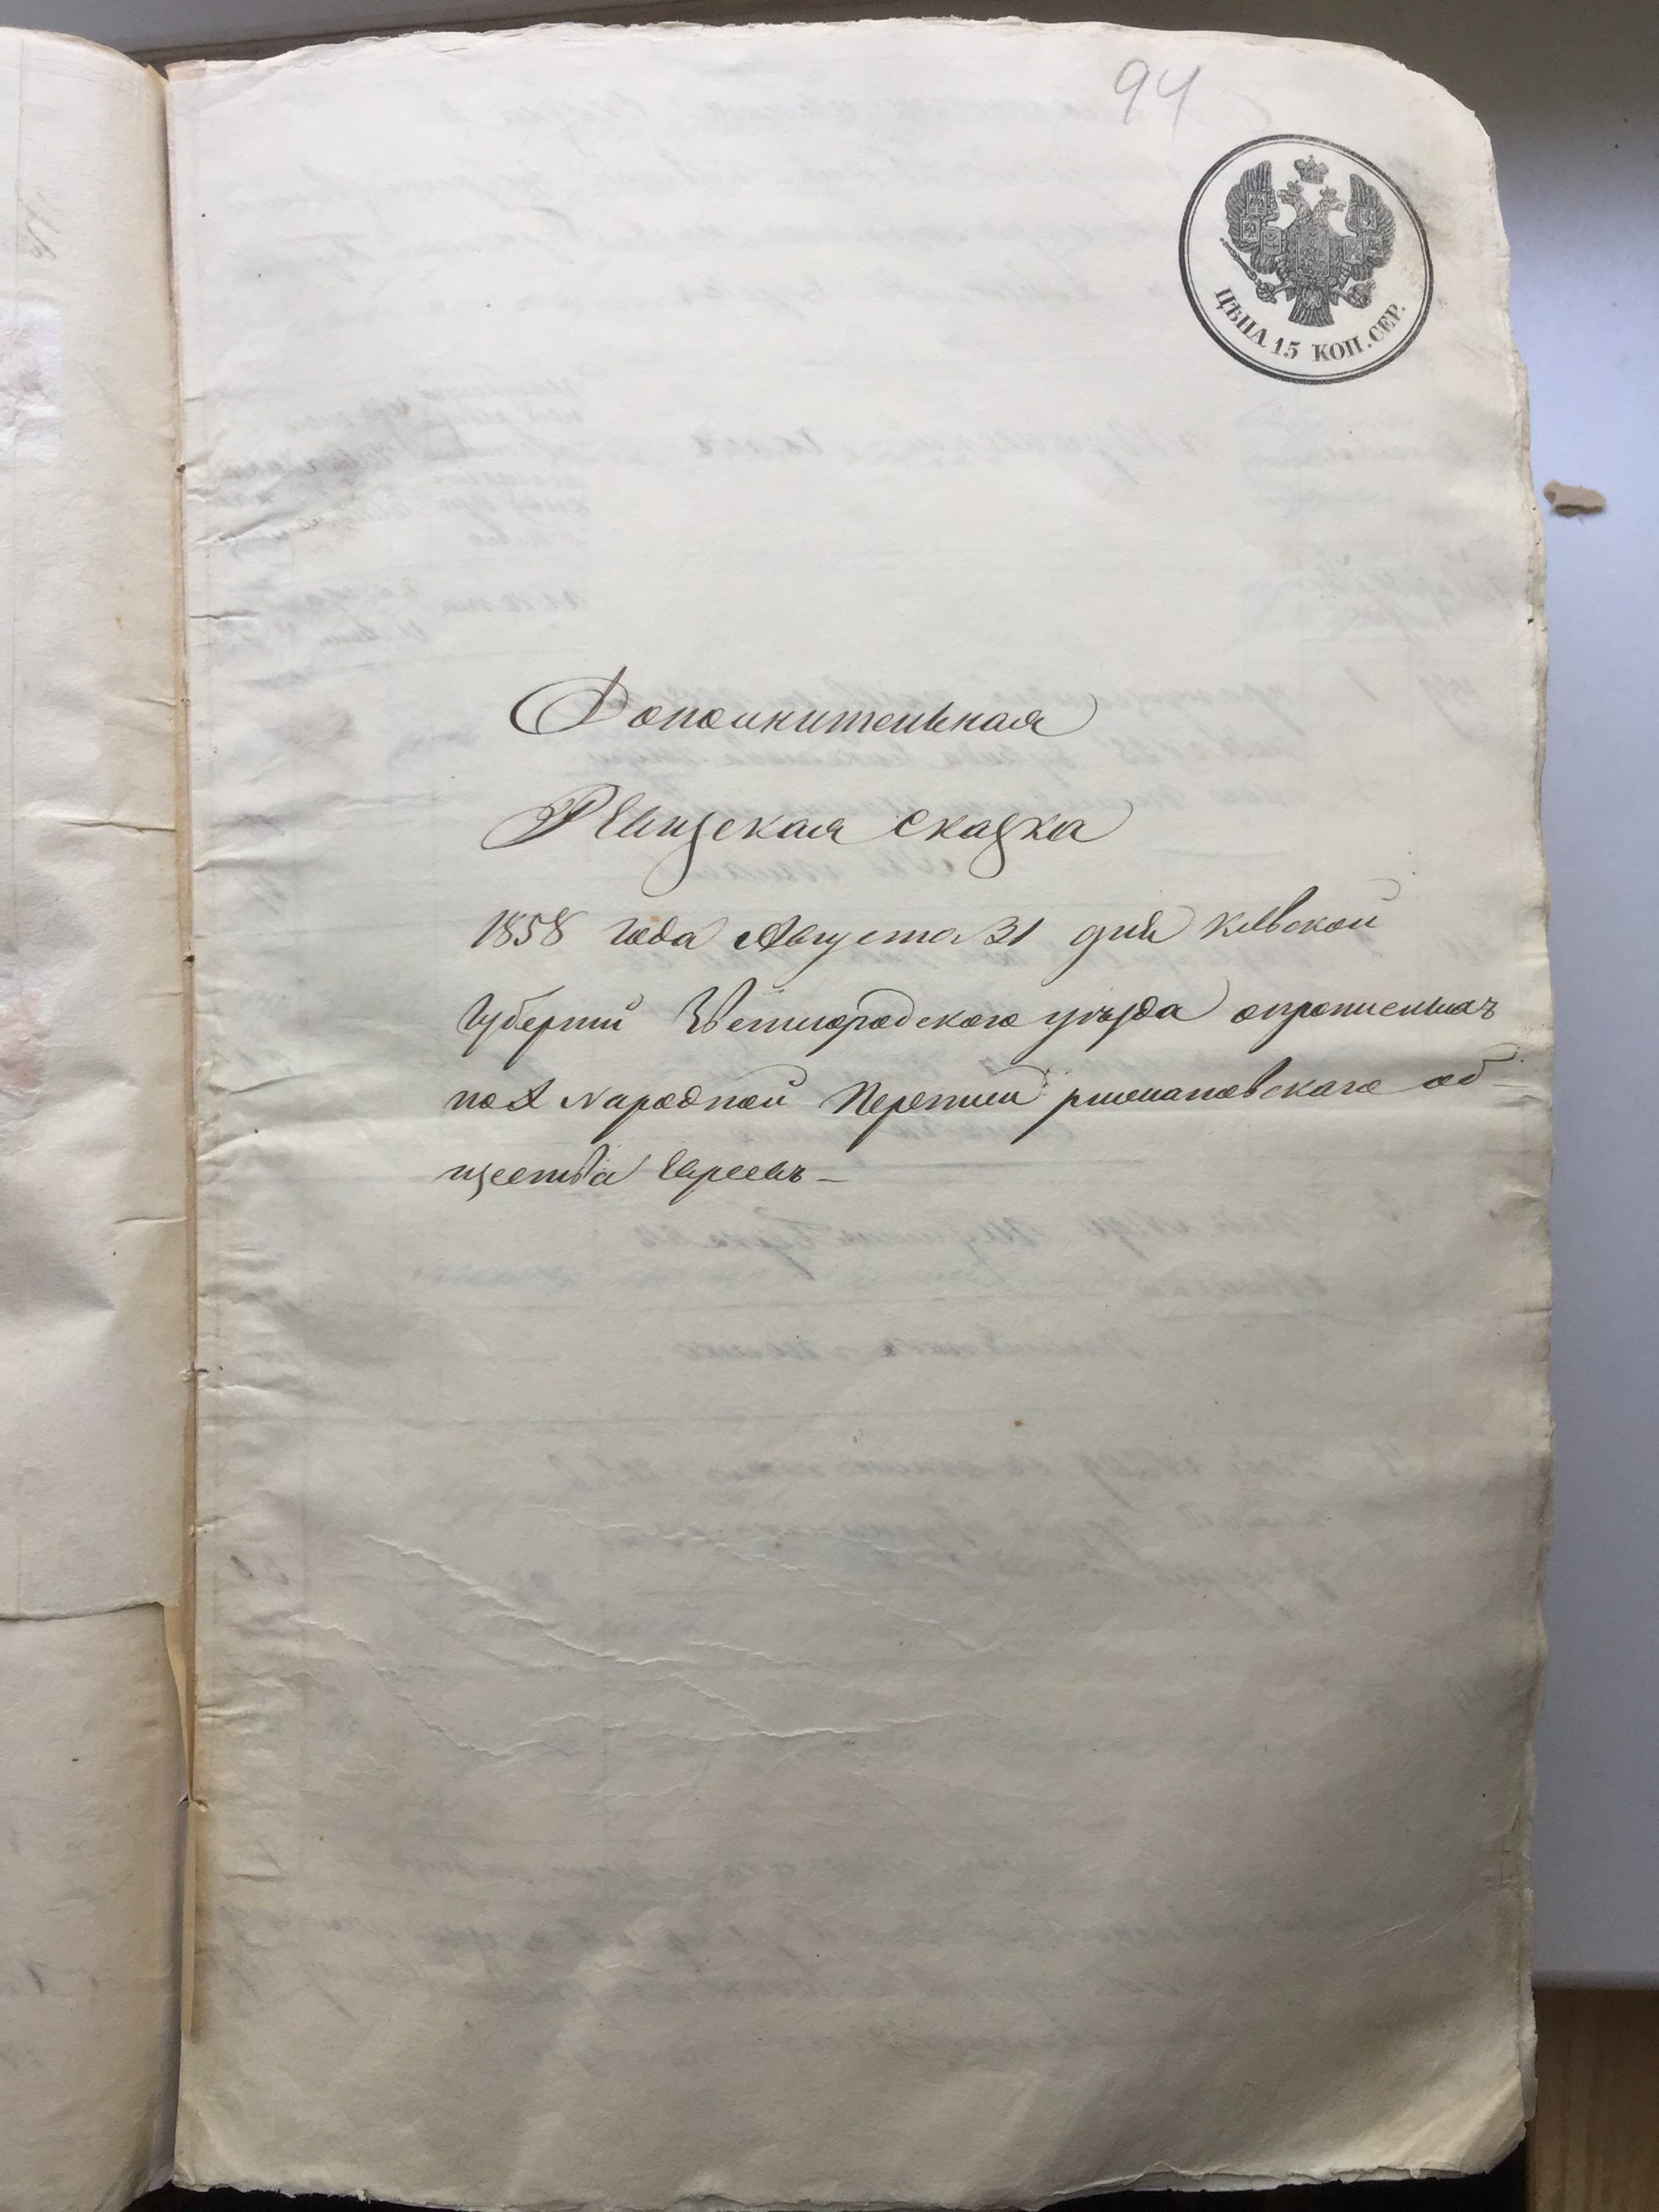 94
ЦѢНА 15 КОП. СЕР.
Дополнительная
Ревизская сказка
1858 года Августа 31 дня Киевской
Губернии Звенигородского уѣзда опрописныхъ
по X Народной Переписи рижановскаго об-
щества Евреевъ –